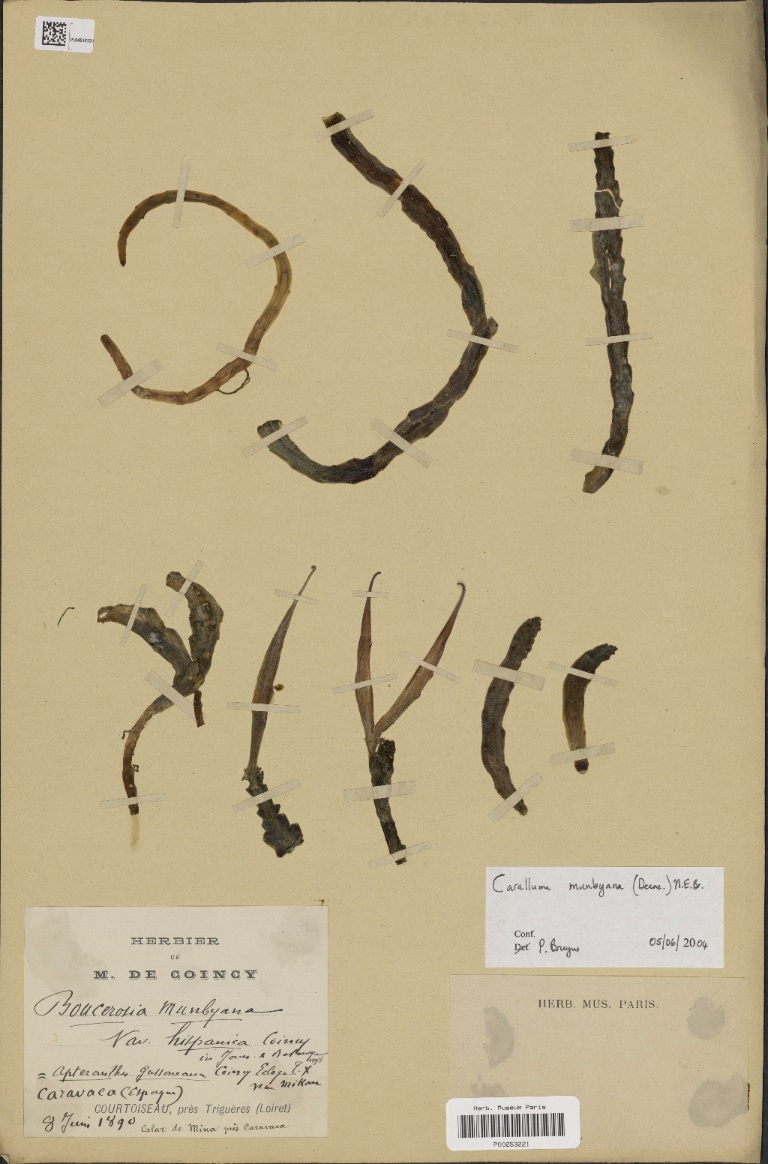 Caralluma munbyana (Decne.) N.E.Br.
Conf.
Det P. Bruyns 05/06/2004
HERBIER
DE
M. DE COINCY
Boucerosia Munbyana
Var. hispanica Coincy
in Journ. de Botanique
= Apteranthes Gussoneana Coincy Ecloga
non Mikan
Caravaca (Espagne)
COURTOISEAU, près Triguères (Loiret)
8 Juin 1890 Calar de Mina près Caravaca
HERB. MUS. PARIS.
Herb. Muséum Paris
P00253221